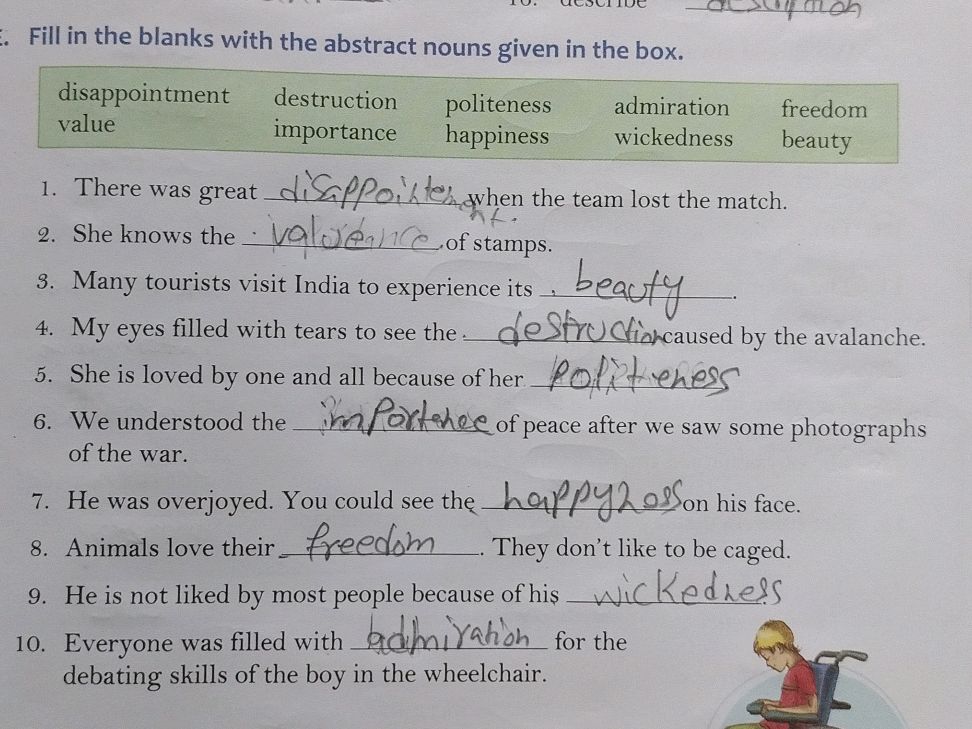 10. describe description
E. Fill in the blanks with the abstract nouns given in the box.
disappointment destruction politeness admiration freedom
value importance happiness wickedness beauty
1. There was great disappointment when the team lost the match.
2. She knows the of stamps.
3. Many tourists visit India to experience its beauty.
4. My eyes filled with tears to see the destruction caused by the avalanche.
5. She is loved by one and all because of her politeness
6. We understood the importence of peace after we saw some photographs
of the war.
7. He was overjoyed. You could see the on his face.
8. Animals love their freedom. They don't like to be caged.
9. He is not liked by most people because of his wickedness
10. Everyone was filled with admiration for the
debating skills of the boy in the wheelchair.